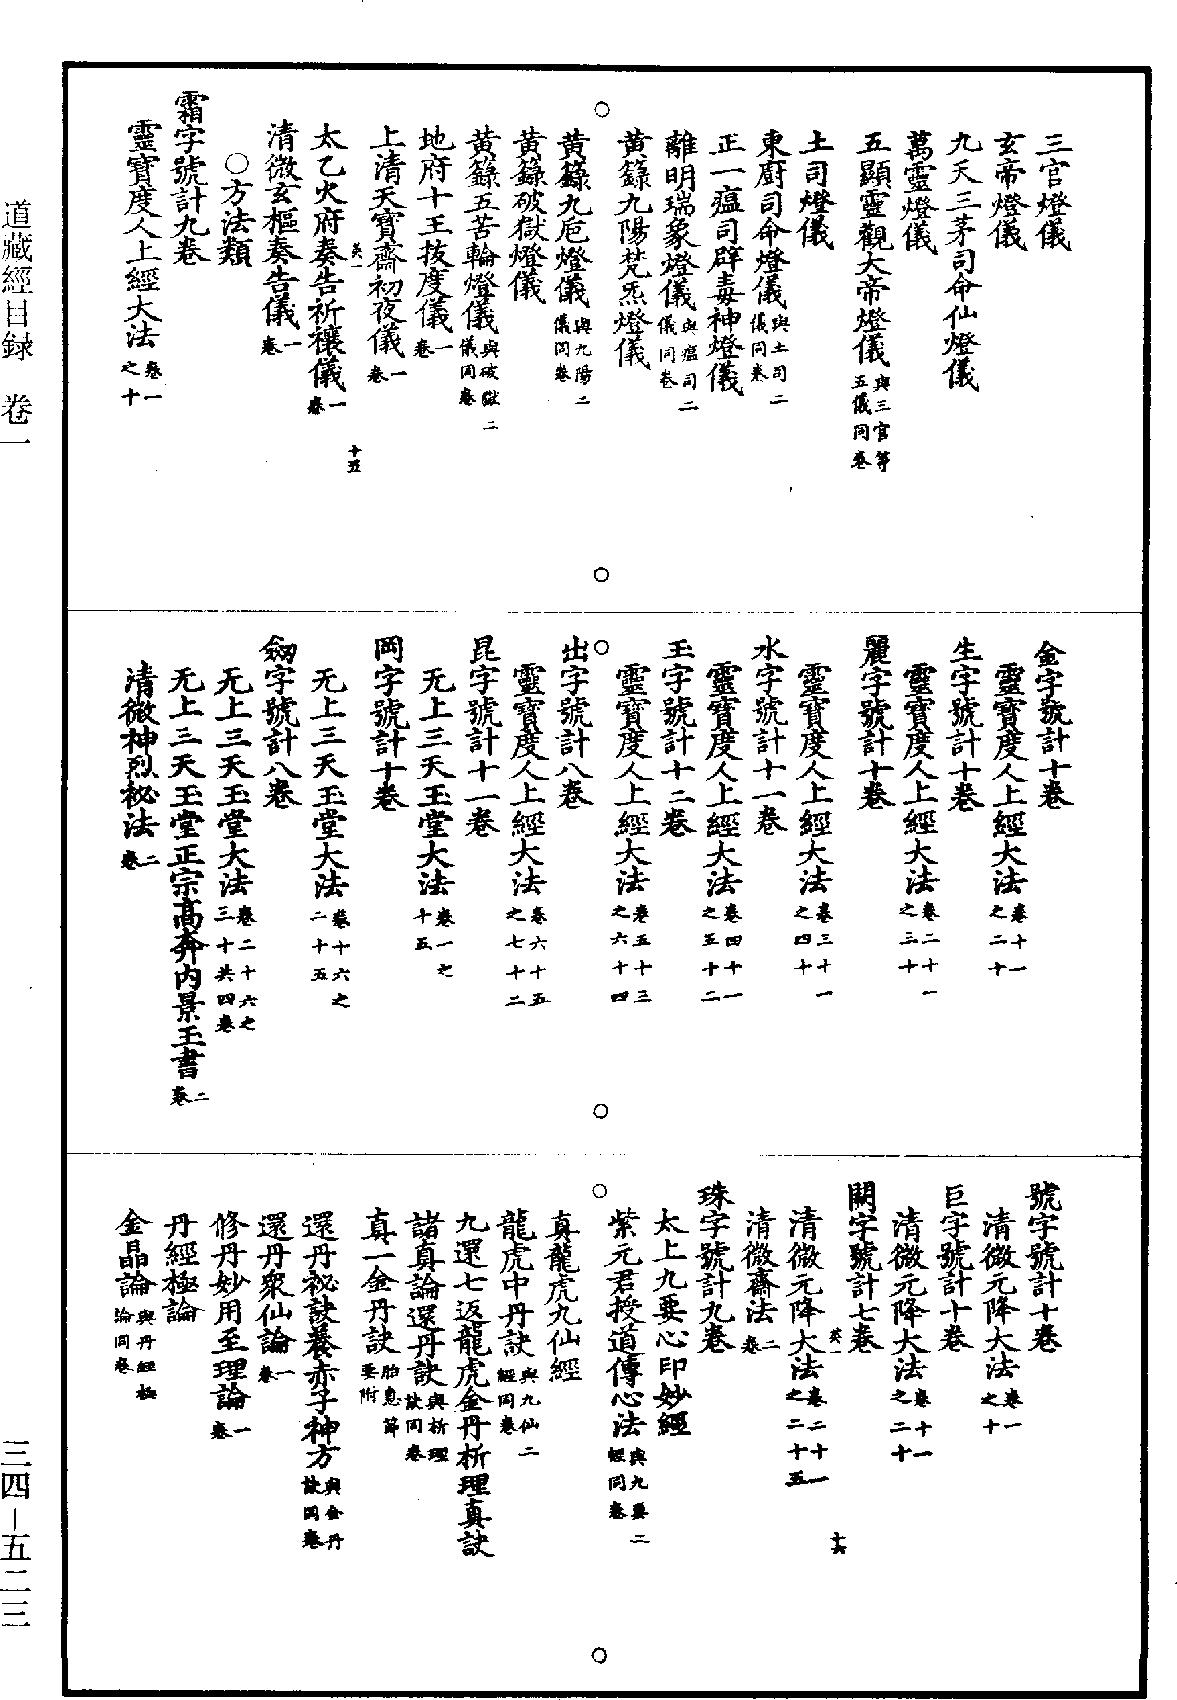 三官燈儀
玄帝燈儀
九天三茅司命仙燈儀
萬靈燈儀
五顯靈觀大帝燈儀 與三官等五儀同卷
土司燈儀
東廚司命燈儀 與土司二儀同卷
正一瘟司辟毒神燈儀
離明瑞象燈儀 與瘟司二儀同卷
黃籙九陽梵炁燈儀
黃籙九巵燈儀 與九陽二儀同卷
黃籙破獄燈儀
黃籙五苦輪燈儀 與破獄二儀同卷
地府十王拔度儀 一卷
上清天寶齋初夜儀 一卷
十五
太乙火府奏告祈禳儀 一卷
清微玄樞奏告儀 一卷
○方法類
霜字號計九卷
靈寶度人上經大法 卷一之十
金字號計十卷
靈寶度人上經大法 卷十一之二十
生字號計十卷
靈寶度人上經大法 卷二十一之三十
麗字號計十卷
靈寶度人上經大法 卷三十一之四十
水字號計十一卷
靈寶度人上經大法 卷四十一之五十二
玉字號計十二卷
靈寶度人上經大法 卷五十三之六十四
出字號計八卷
靈寶度人上經大法 卷六十五之七十二
昆字號計十一卷
无上三天玉堂大法 卷一之十五
岡字號計十卷
无上三天玉堂大法 卷十六之二十五
劒字號計八卷
无上三天玉堂大法 卷二十六之三十共四卷
无上三天玉堂正宗高奔內景玉書 二卷
清微神烈祕法 二卷
號字號計十卷
清微元降大法 卷一之十
巨字號計十卷
清微元降大法 卷十一之二十
闕字號計七卷
十六
清微元降大法 卷二十一之二十五
清微齋法 二卷
珠字號計九卷
太上九要心印妙經
紫元君授道傳心法 與九要二經同卷
真龍虎九仙經
龍虎中丹訣 與九仙二經同卷
九還七返龍虎金丹析理真訣
諸真論還丹訣 與析理訣同卷
真一金丹訣 胎息節要附
還丹祕訣養赤子神方 與金丹訣同卷
還丹眾仙論 一卷
修丹妙用至理論 一卷
丹經極論
金晶論 與丹經極論同卷
道藏經目録 卷一
三四－五二三